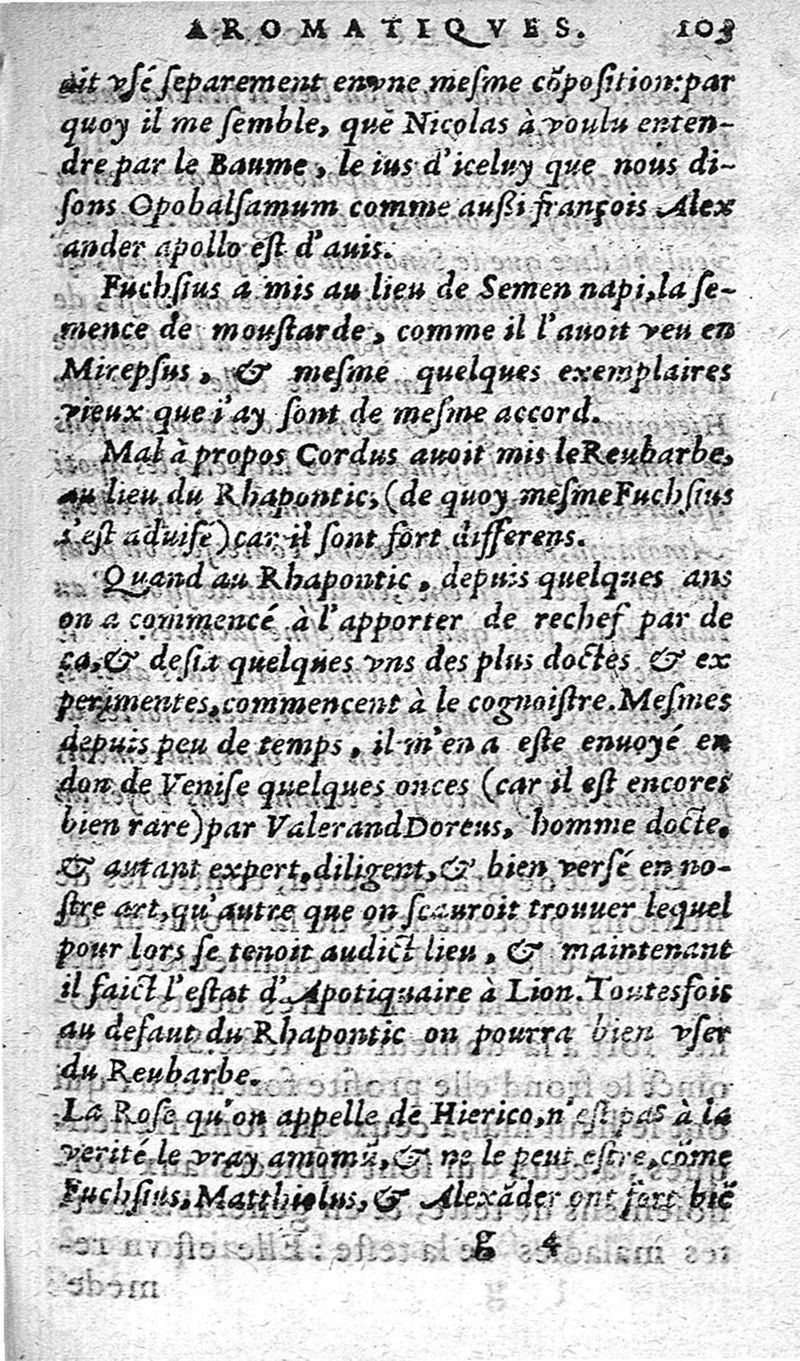 AROMATIQVES. 103
ait vſé ſeparement en vne meſme cõpoſition: par
quoy il me ſemble, que Nicolas à voulu enten-
dre par le Baume, le ius d'iceluy que nous di-
ſons Opobalſamum comme außi françois Alex
ander apollo eſt d'auis.
Fuchſius a mis au lieu de Semen napi, la ſe-
mence de mouſtarde, comme il l'auoit veu en
Mirepſus, & meſme quelques exemplaires
vieux que i'ay ſont de meſme accord.
Mal à propos Cordus auoit mis le Reubarbe,
au lieu du Rhapontic, (de quoy meſme Fuchſius
s'eſt aduiſe) car il ſont fort differens.
Quand au Rhapontic, depuis quelques ans
on a commencé à l'apporter de rechef par de
ça, & deſia quelques vns des plus doctes & ex
perimentes, commencent à le cognoiſtre. Meſmes
depuis peu de temps, il m'en a eſte enuoyé en
don de Veniſe quelques onces (car il eſt encores
bien rare) par Valerand Doreus, homme docte,
& autant expert, diligent, & bien verſé en no-
ſtre art, qu'autre que on ſcauroit trouuer lequel
pour lors ſe tenoit audict lieu, & maintenant
il faict l'eſtat d'Apotiquaire à Lion. Toutesfois
au defaut du Rhapontic on pourra bien vſer
du Reubarbe.
La Roſe qu'on appelle de Hierico, n'eſt pas à la
verité le vray amomũ, & ne le peut eſtre, cõme
Fuchſius, Matthiolus, & Alexãder ont fort biẽ
g 4